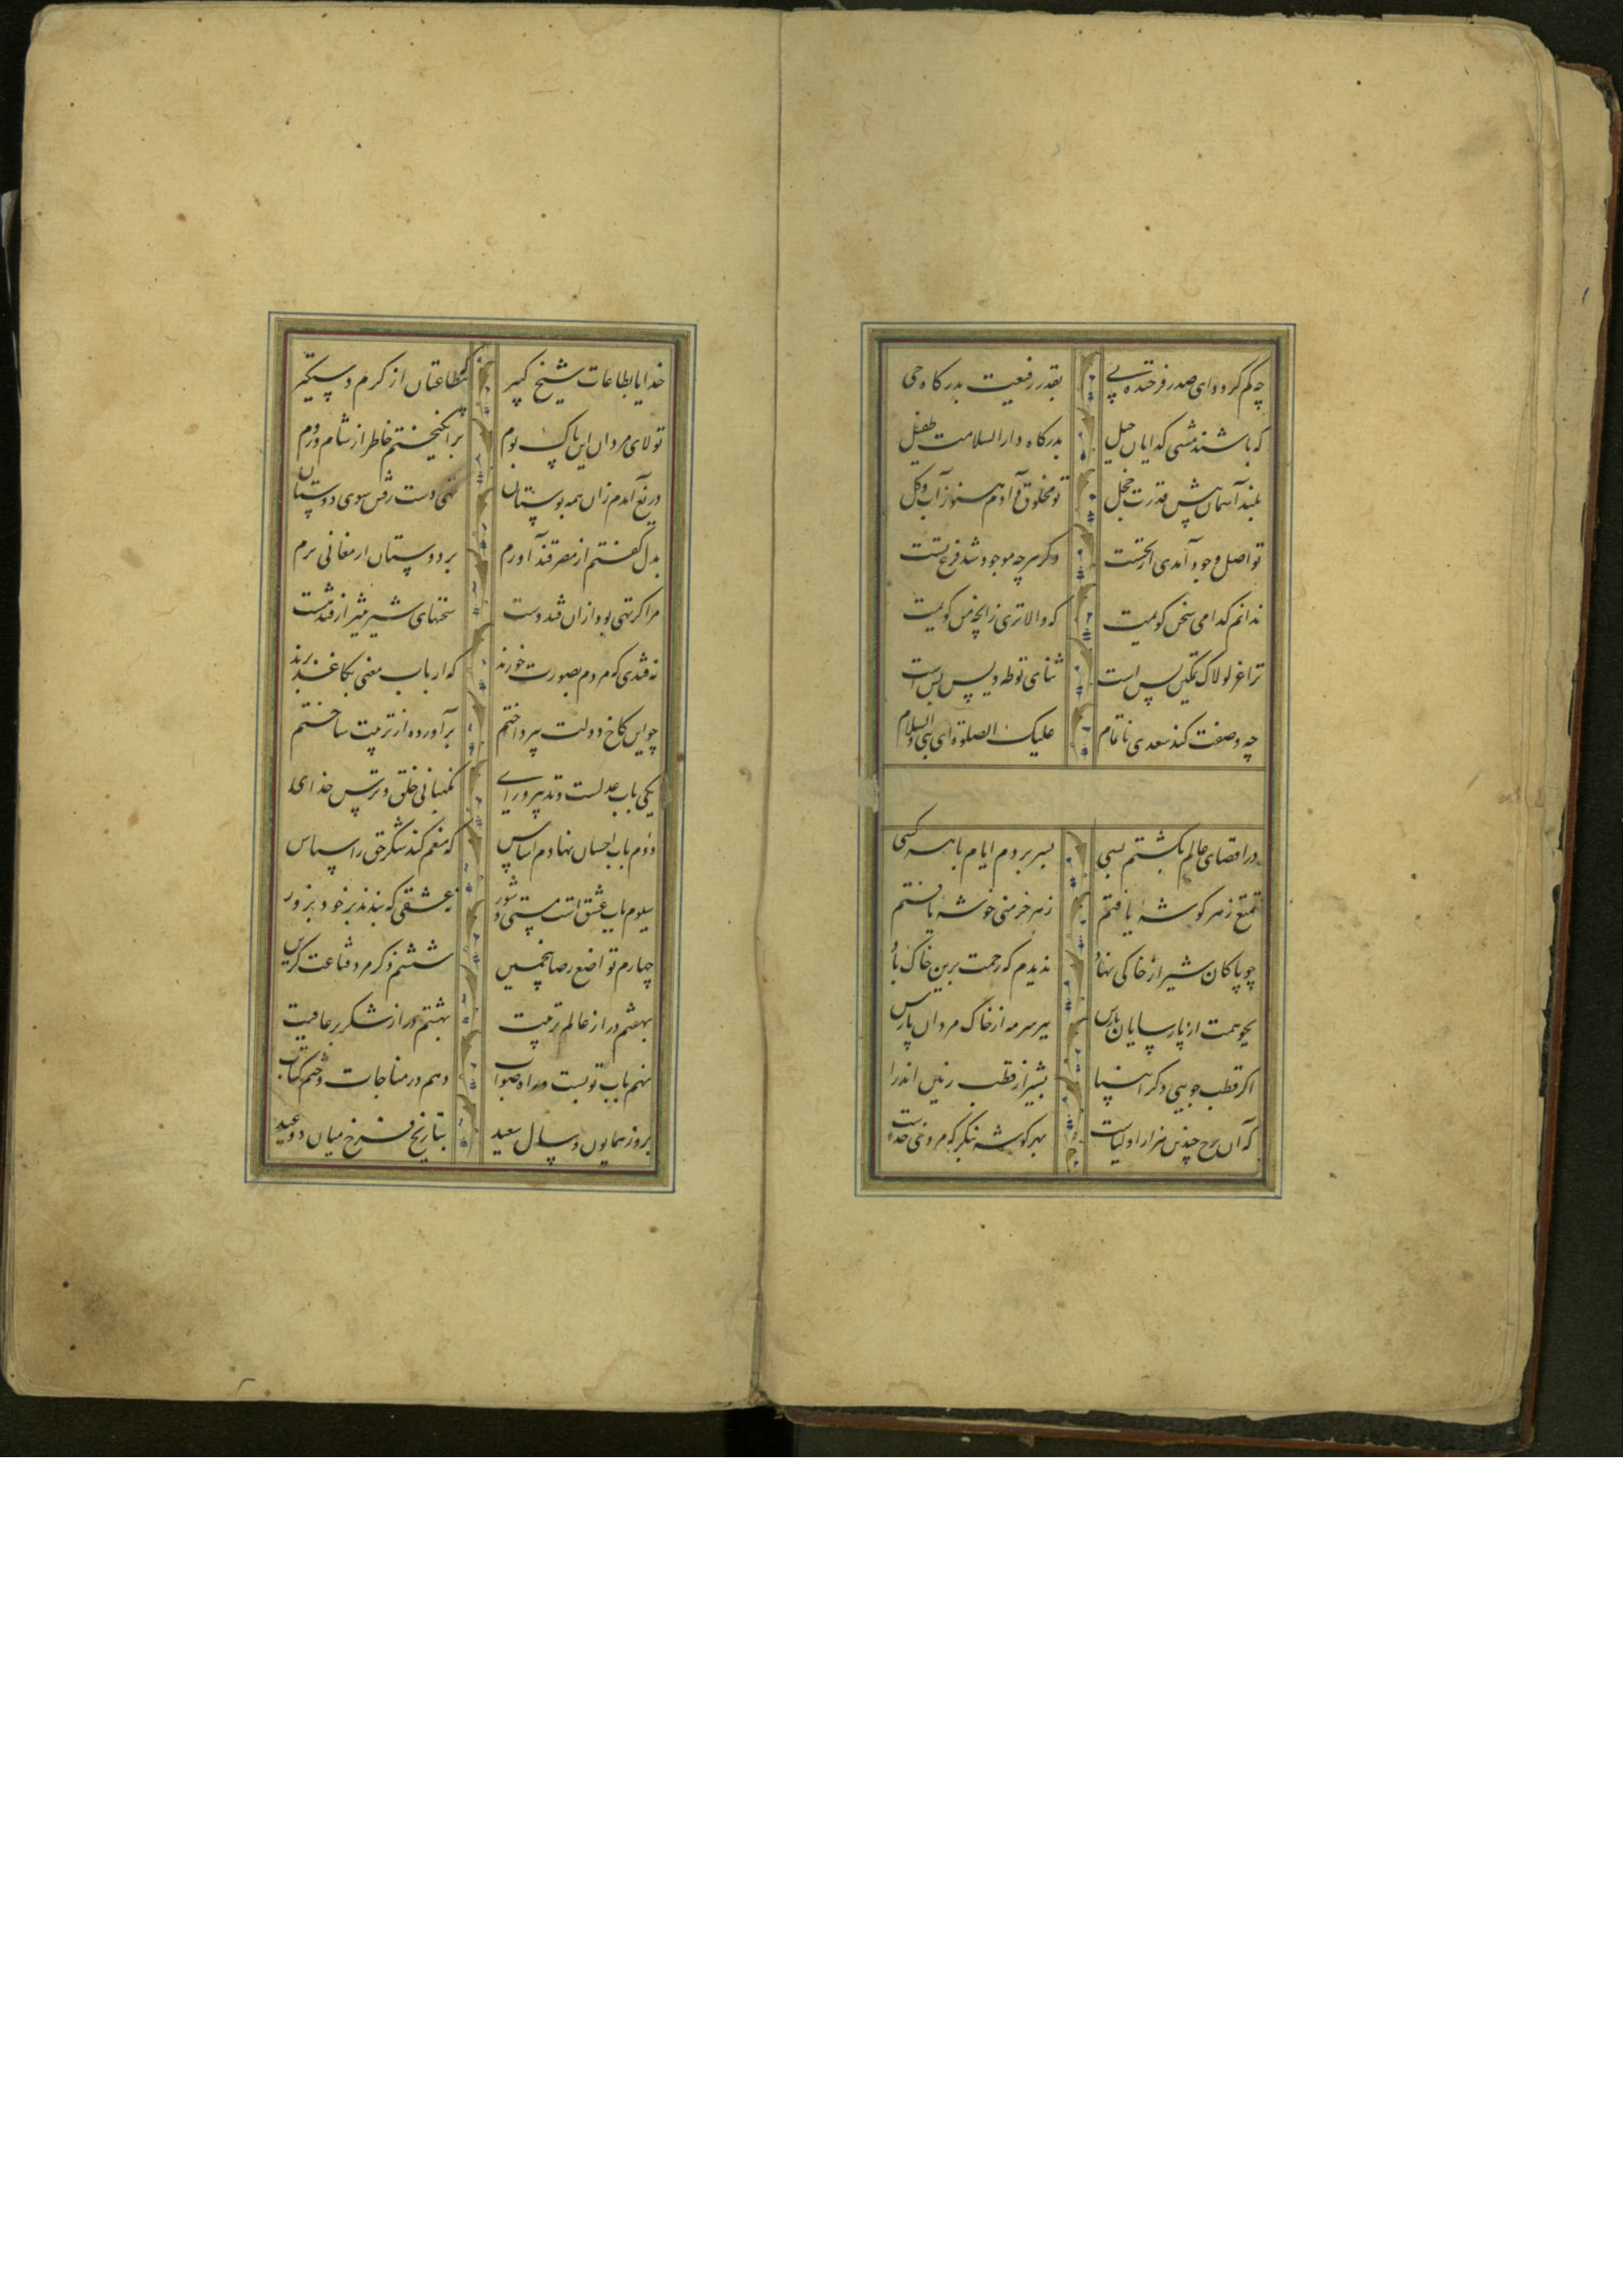 چه کم گردد ای صدر فرخنده پی بقدر رفیعت بدرکاه حی
که باشند مشتی کدایان خیل بدرکاه دارالسلامت طفیل
بلند آسمان پیش قدرت خجل تو مخلوق و آدم هنوز آب و کل
تو اصل وجود آمدی از نخست وکر هرچه موجود شد فرع تست
ندانم کدامی سخن کویمت که والاتری زانچه من کویمت
ترا عز لولاک تمکین بس است ثنای تو طه و یس بس است
چه وصفت کند سعدی ناتمام علیک الصلوة ای نبی والسلام
در اقصای عالم بکشتم بسی بسر بردم ایام با هر کسی
تمتع ز هر کوشهٔ یافتم ز هر خرمنی خوشهٔ یافتم
چو پاکان شیراز خاکی نهاد ندیدم که رحمت برین خاک باد
بجو همت از پارسایان پارس ببر سرمه از خاک مردان پارس
اکر قطب جویی وکر بشیراز قطب زمین اندرا
که آن برج چندین هزار اولیاست بهر کوشه بنکر که مرد
خدایا بطاعات شیخ کبیر بطاعتان از کرم دستکیر
تولای مردان این پاک بوم برانکیختم خاطر از شام و روم
دریغ آمدم زان همه بوستان تهی دست رفتن سوی دوستان
بدل کفتم از مصر قند آورم بر دوستان ارمغانی برم
مرا کر تهی بود از آن قند دست سخنهای شیرین تر از قند هست
نه قندی که مردم بصورت خورند که ارباب معنی بکاغذ برند
چو این کاخ دولت بپرداختم برآورده از تربیت ساختم
یکی باب عدلست و تدبیر و رای نکهبانی خلق و ترس خدای
دوم باب احسان نهادم اساس که منعم کند شکر حق را سپاس
سیوم باب عشق است و مستی و شور نه عشقی که بندند بر خود بزور
چهارم تواضع رضا پنجمین ششم ذکر مرد قناعت کزین
بهفتم در از عالم تربیت بهشتم در از شکر بر عافیت
نهم باب توبست و راه صواب دهم در مناجات و ختم کتاب
بروز همایون و سال سعید بتاریخ فرخ میان دو عید